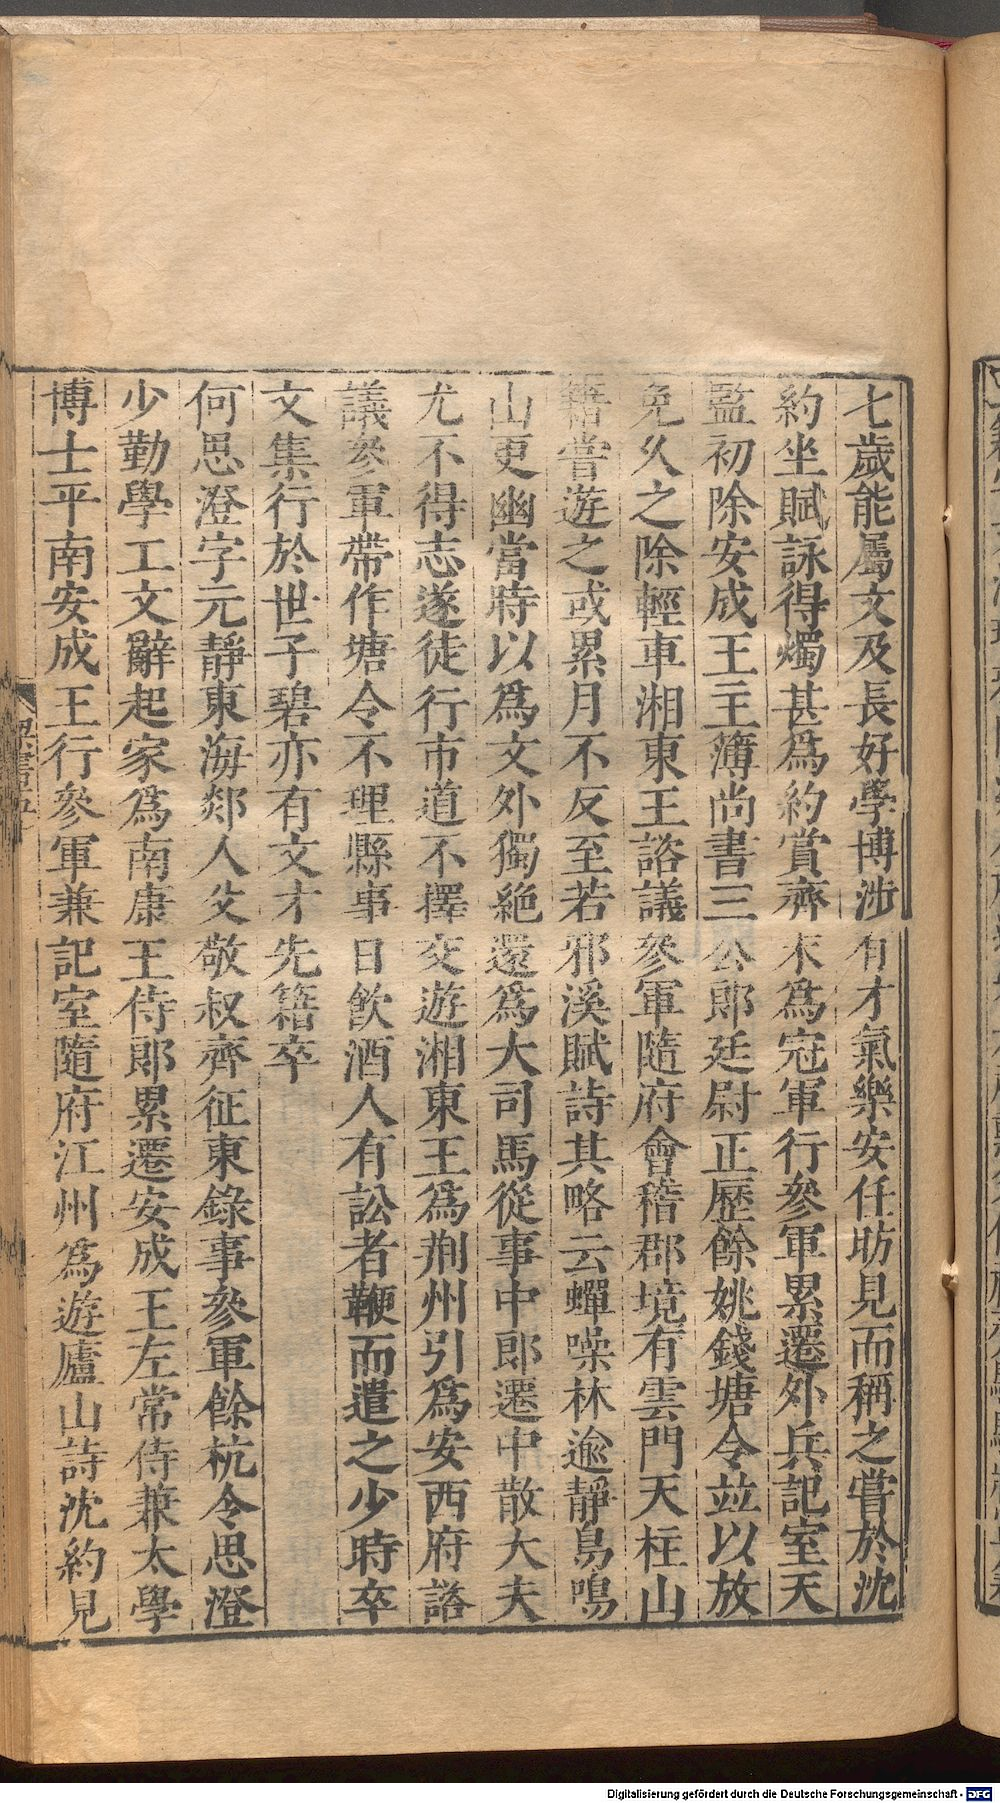 七歲能屬文及長好學博涉有才氣樂安任昉見而稱之嘗於沈
約坐賦詠得燭甚爲約賞齊末爲冠軍行參軍累遷外兵記室天
監初除安成王主簿尚書三公郎廷尉正歷餘姚錢塘令並以放
免久之除輕車湘東王諮議參軍隨府會稽郡境有雲門天柱山
籍嘗遊之或累月不反至若邪溪賦詩其略云蟬噪林逾靜鳥鳴
山更幽當時以爲文外獨絶還爲大司馬從事中郎遷中散大夫
尤不得志遂徒行市道不擇交遊湘東王爲荊州引爲安西府諮
議參軍帶作塘令不理縣事日飲酒人有訟者鞭而遣之少時卒
文集行於世子碧亦有文才先籍卒
何思澄字元靜東海郯人父敬叔齊征東錄事參軍餘杭令思澄
少勤學工文辭起家爲南康王侍郎累遷安成王左常侍兼太學
博士平南安成王行參軍兼記室隨府江州爲遊廬山詩沈約見
Digitalisierung gefördert durch die Deutsche Forschungsgemeinschaft - DFG